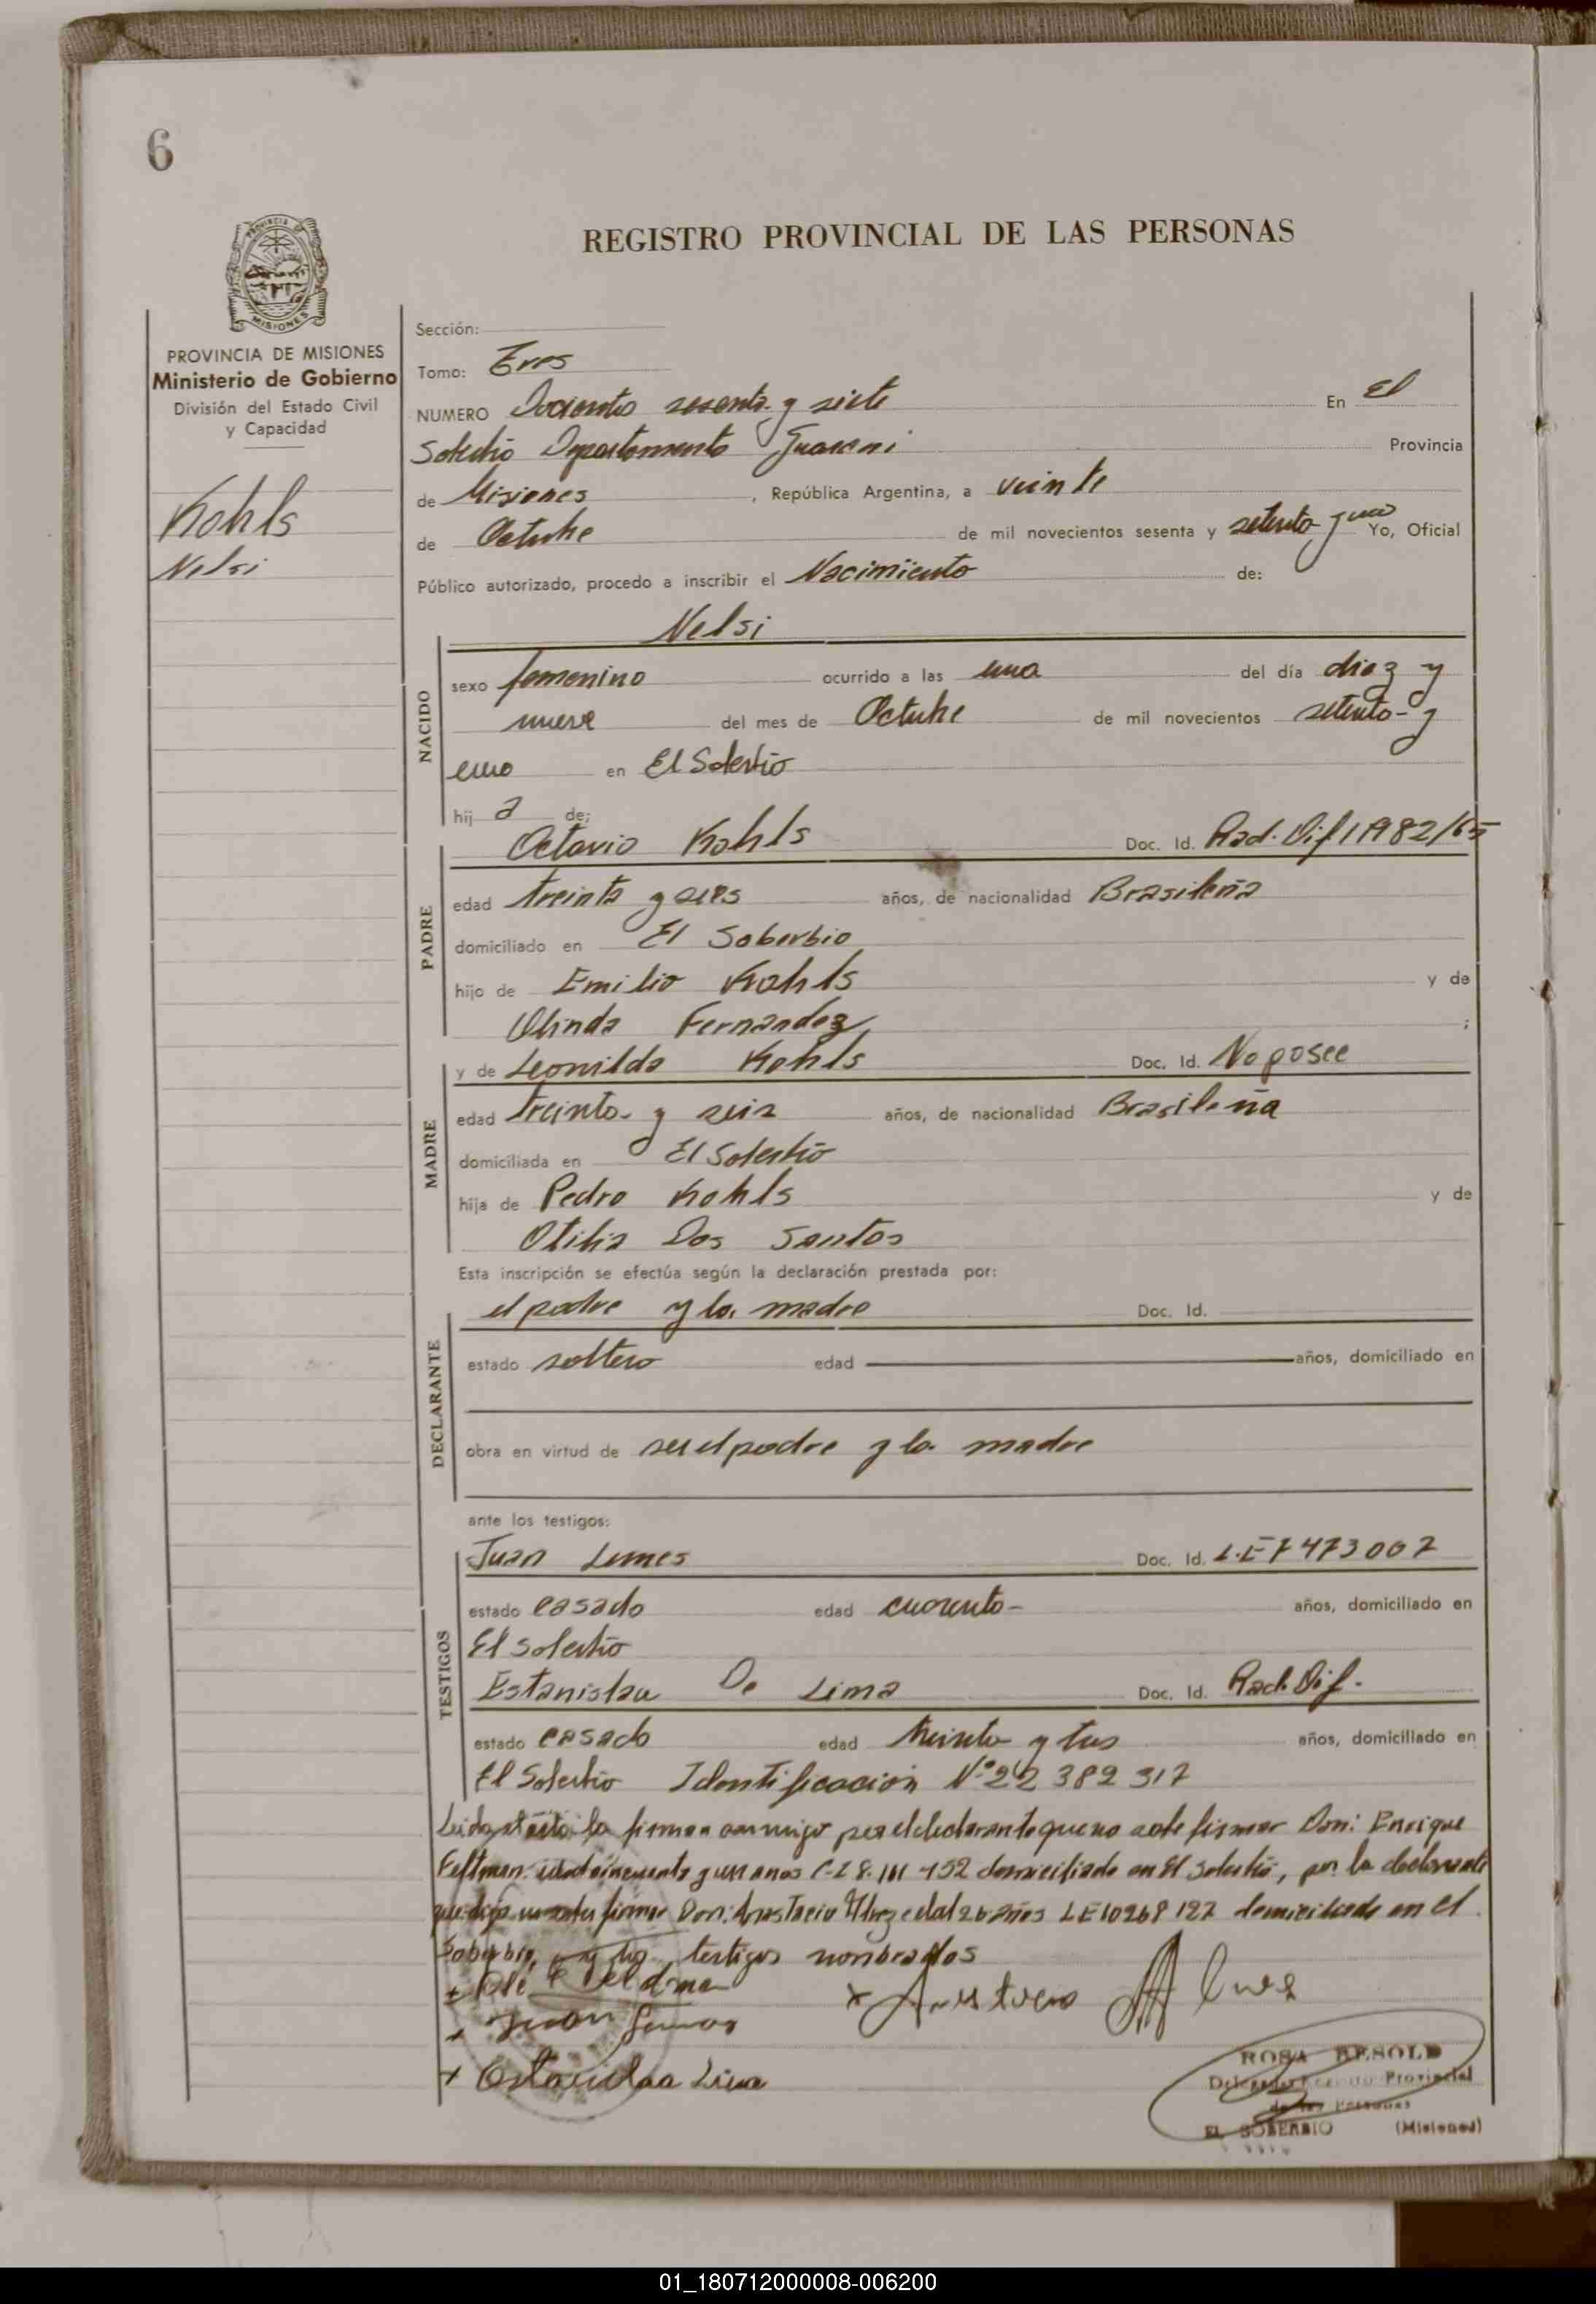 6
PROVINCIA DE
MISIONES
REGISTRO PROVINCIAL DE LAS PERSONAS
PROVINCIA DE MISIONES
Ministerio de Gobierno
División del Estado Civil
y Capacidad
Kohls
Nelsi
Sección:
Tomo: Tres
NUMERO Docientos sesenta y siete En El
Soberbio Departamento Guarani Provincia
de Misiones, República Argentina, a veinte
de Octubre de mil novecientos sesenta y setenta y uno Yo, Oficial
Público autorizado, procedo a inscribir el Nacimiento de:
Nelsi
NACIDO
sexo femenino ocurrido a las una del día diez y
nueve del mes de Octubre de mil novecientos setenta y
uno en El Soberbio
hij a de;
PADRE
Octavio Kohls Doc. Id. Rad. Dif 11982/65
edad treinta y seis años, de nacionalidad Brasileña
domiciliado en El Soberbio
hijo de Emilio Kohls y de
Olinda Fernandez ;
MADRE
y de Leonilda Kohls Doc. Id. No posee
edad treinta y seis años, de nacionalidad Brasileña
domiciliada en El Soberbio
hija de Pedro Kohls y de
Otilia Dos Santos
Esta inscripción se efectúa según la declaración prestada por:
DECLARANTE
el padre y la madre Doc. Id.
estado soltero edad años, domiciliado en
obra en virtud de ser el padre y la madre
ante los testigos:
TESTIGOS
Juan Lemes Doc. Id. L.E 7473007
estado casado edad cuarenta años, domiciliado en
El Soberbio
Estanislau De Lima Doc. Id. Rad. Dif.
estado casado edad treinta y tres años, domiciliado en
El Soberbio Identificación Nº 22 382 317
Leida el acta la firman conmigo por el declarante que no sabe firmar Don: Enrique
Feltman cincuenta y un anos C.I 8.101 452 domiciliado en El Soberbio, por la declarante
que dijo no saber firmar Don: Anastacio Alvez edad 26 años LE 10268 127 domiciliado en El
Soberbio, y los testigos nombrados
Feldman
x Anastacio Alves
x Juan Lemes
x Estanislau Lima
ROSA BESOLD
Delegado Registro Provincial
de las Personas
EL SOBERBIO (Misiones)
01_180712000008-006200